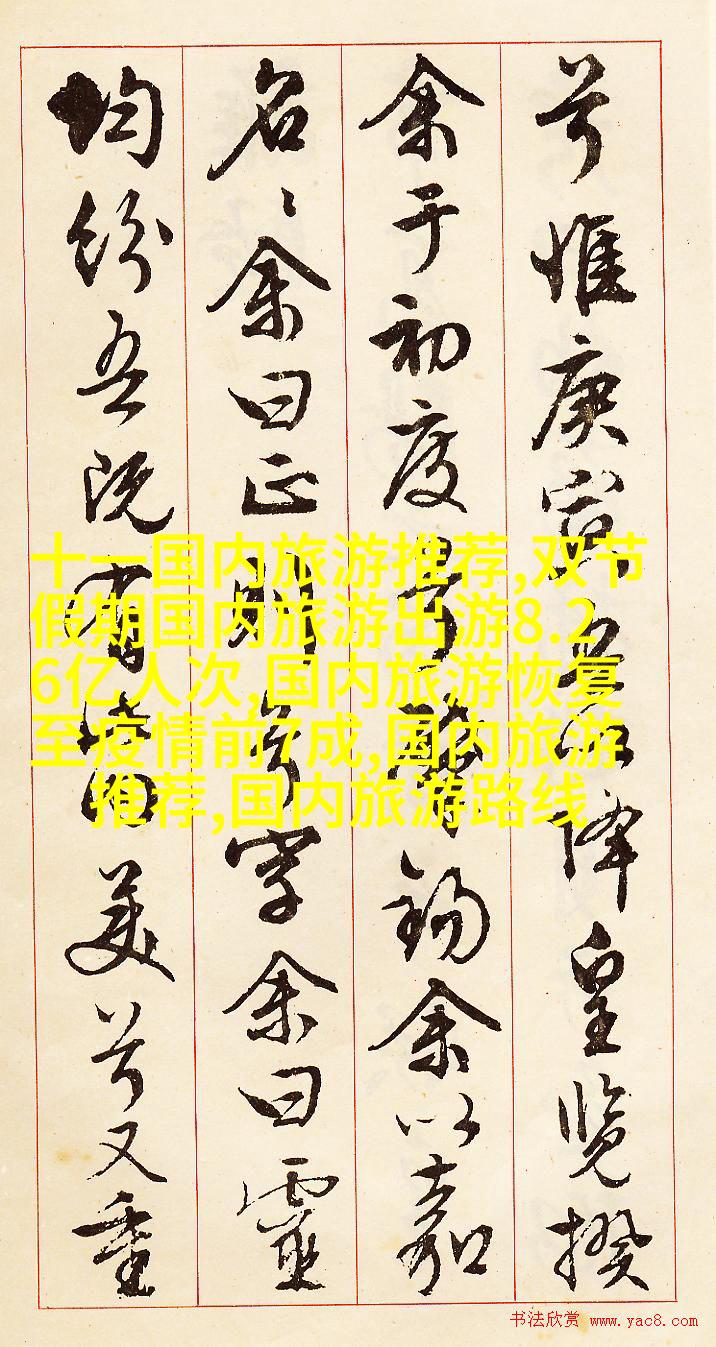 兮惟庚寅吾以降皇覽揆
余于初度兮肇錫余以嘉
名〻余曰正則兮字余曰靈
均紛吾既有此内美兮又重
十一国内旅游推荐,双节
假期国内旅游出游8.2
6亿人次,国内旅游恢复
至疫情前7成,国内旅游
推荐,国内旅游路线
书法欣赏 www.yac8.com